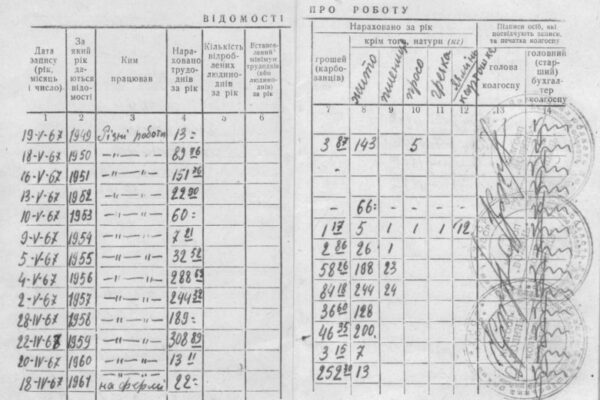 ВІДОМОСТІ
ПРО РОБОТУ
Дата запису (рік, місяць і число)
За який рік даються відомості
Ким працював
Нараховано трудоднів за рік
Кількість відроблених людино-днів за рік
Встановлений мінімум трудоднів (або людино-днів) за рік
Нараховано за рік
грошей (карбованців)
крім того, натури (кг)
жито
пшениця
просо
гречка
картошка
Підписи осіб, які посвідчують записи, та печатка колгоспу
голова колгоспу
головний (старший) бухгалтер колгоспу
1 2 3 4 5 6
7 8 9 10 11 12 13 14
19-V-67 1949 Різні роботи 13=
3 87 143 5
18-V-67 1950 —"—"— 89 76
-
16-V-67 1951 —"—"— 151 76
-
13-V-67 1952 —"—"— 22 90
10-V-67 1953 —"—"— 60=
- 66=
9-V-67 1954 —"—"— 7 21
1 17 5 1 1 1 12
5-V-67 1955 —"—"— 32 52
2 86 26 1
4-V-67 1956 —"—"— 288 63
58 26 198 23
2-V-67 1957 —"—"— 294
84 18 244 24
28-IV-67 1958 —"—"— 189=
36 60 128
22-IV-67 1959 —"—"— 308 89
46 35 200
20-IV-67 1960 —"—"— 13 11
3 15 7
18-IV-67 1961 на фермі 22=
252 13